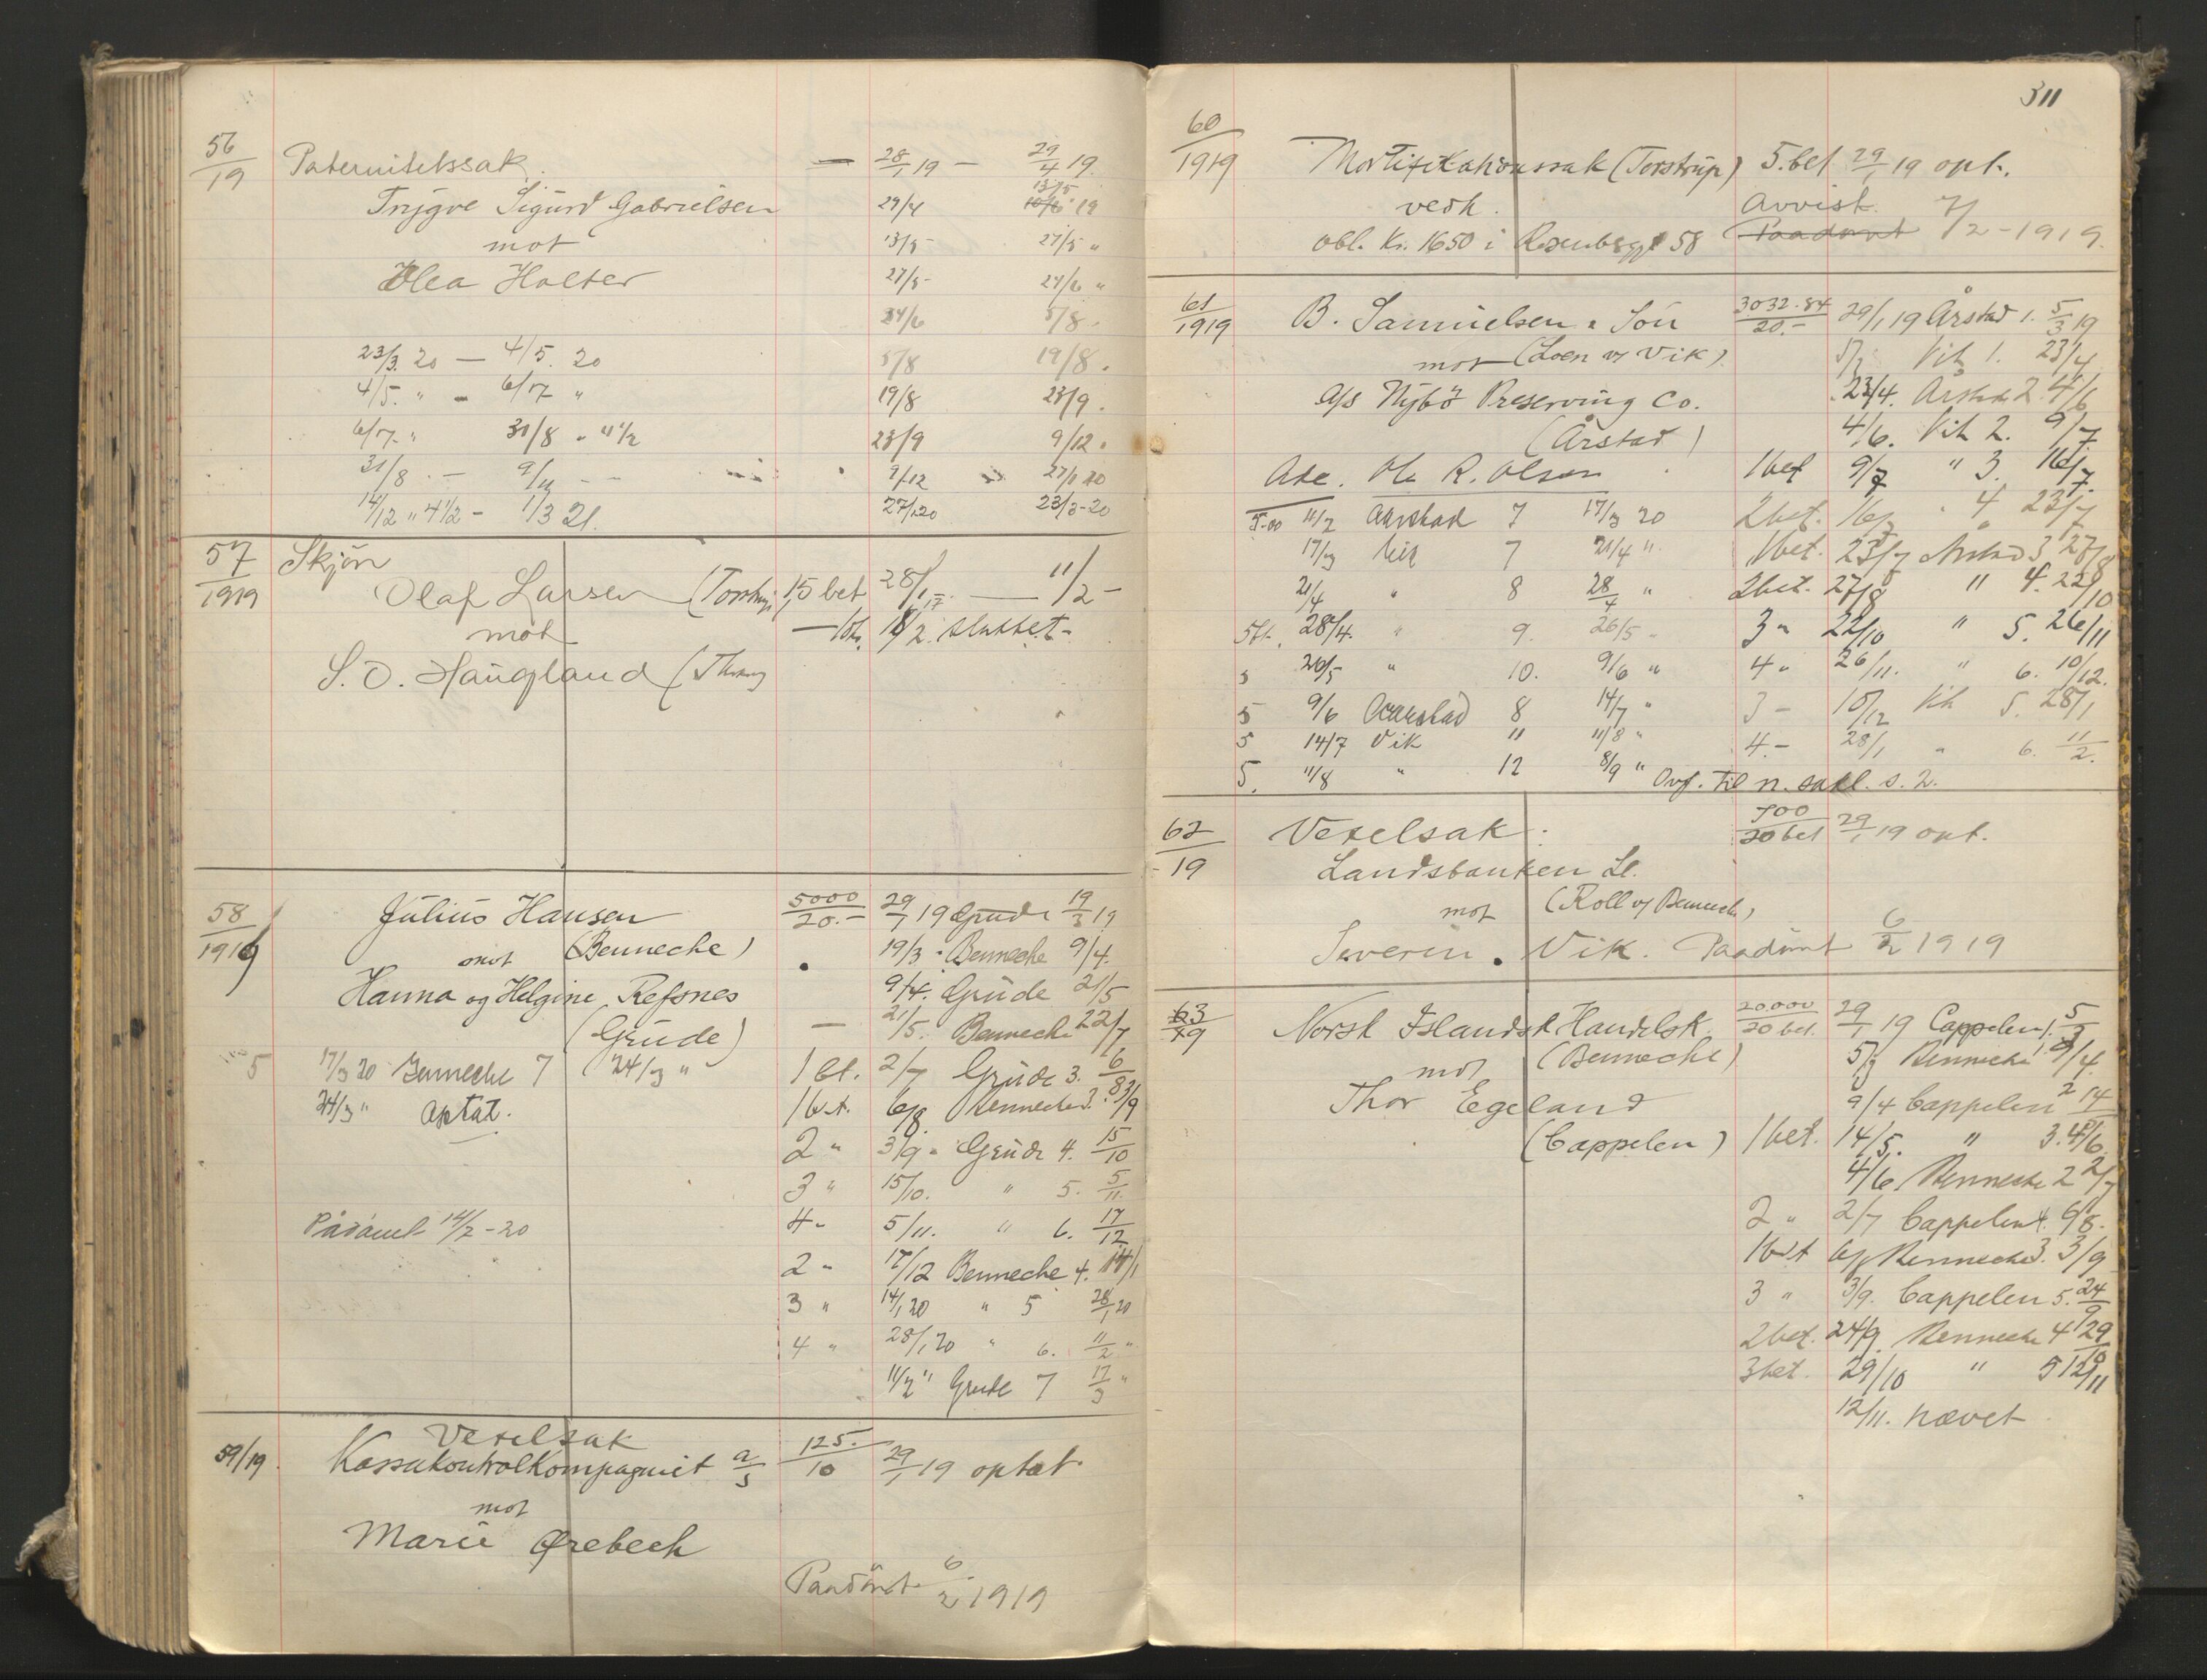 56/19 Paternitetssak. — 28/1 19 — 29/4 19.
Trygve Sigurd Gabrielsen 29/4 13/5 19
mot 13/5 - 27/5 "
Olea Halter 27/5 - 24/6 "
24/6 5/8 -
23/3. 20 — 4/5. 20 5/8 19/8 .
4/5. " - 6/7 " 19/8 23/9 .
6/7 - " 31/8 - " 11 1/2 23/9 9/12 .
31/8 . — 9/11 - - 9/12 27/1 20
14/12 " 4 1/2 - 1/3 21. 27/1 20 23/3 - 20
57/1919 Skjön
Olaf Larsen (Torstrup 15 bet 28/1 — 11/2 -
mot 11/2. sluttet -
S. O. Haugland (
58/1919 Julius Hansen 5000/20.- 29/1 19 Grude 19/3 19
mot (Benneche) 19/3 - Benneche 9/4.
Hanna og Helgine Refsnes 9/4. Grude 21/5
(Grude) — 21/5. Bennech 22/7
5 17/3 20 Bennecke 7 24/3 " 1 bt. 2/7 Grude 3. 6/8
24/3 " Optat. 1 bet. 6/8 Bennecke 3. 3/9
2 " 3/9 - Grude 4. 15/10
3 " 15/10. " 5. 5/11.
Pådömt 14/7 - 20 4 - 5/11. " 6. 17/12
2 - 17/12 Benneche 4. 14/1
3 " 14/1 20 " 5 28/1 20
4 " 28/1 20 " 6. 11/2 "
11/2 " Grude 7 17/3 "
59/19 Vexelsak
Kassakontrolkompagniet a/s 125./10 29/1 19 optat
mot
Marie Ørebech
Paadömt 6/2 1919
311
60/1919 Mortifikationssak (Torstrup) 5. bet 29/1 19 opt.
vedk. Avvist 7/2 - 1919.
obl. Kr. 1650 i Rosenbggt 58 Paadömt
61/1919 B. Samuelsen & Sön 3032.84/20.- 29/1 19 Årstad 1. 5/3 19
mot (Loen og Vik) 5/3 Vik 1. 23/4
A/s Nybö Preserving Co. 23/4. Årstad 2. 4/6
(Årstad) 4/6. Vik 2. 9/7.
Adc. Ole R. Olsen 1 bet 9/7 " 3. 16/7.
5.00 11/2 Aarstad 7 17/3 20 2 bet. 16/7 " 4 23/7
17/3 Vik 7 21/4 " 1 bet. 23/7 Årstad 3 27/8
21/4 " 8 28/4 " 2 bet. 27/8 " 4. 22/10
28/4. " 9. 26/5 - 3 " 22/10 " 5. 26/11
5 26/5 " 10. 9/6 " 4 " 26/11. " 6. 10/12.
5 9/6 Aarstad 8 14/7 " 3 - 10/12 Vik 5. 28/1
5 14/7 Vik 11 11/8 " 4 - 28/1 " 6. 11/2.
5. 11/8 " 12 8/9 " Ovf. til n. sakl. s. 2.
62/19 Vexelsak : 700/20 bet 29/1 19 opt.
Landsbanken Ll.
mot (Roll og Bennech)
Severin . Vik. Paadömt 6/2 1919
63/19 Norsk Islandsk Handelsk. 20.000/20 bet. 29/1 19 Cappelen 1. 5/3
mot (Bennecke) 5/3 Bennecke 1 9/4.
Thor Egeland 9/4 Cappelen 2 14/5
(Cappelen) 1 bet. 14/5. " 3. 4/6.
4/6 Bennecke 2 2/7
2 " 2/7 Cappelen 4. 6/8.
1 bet 6/8 Bennecke 3. 3/9
3 " 3/9. Cappelen 5. 24/9
2 bet. 24/9. Bennecke 4 29/10
3 bet. 29/10 " 5 12/11
12/11. hævet